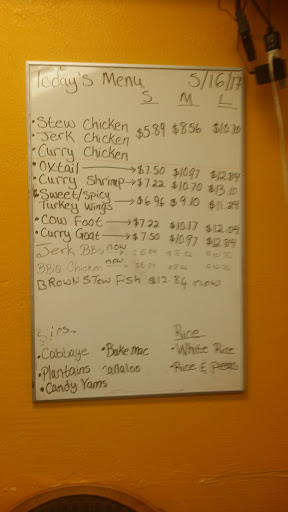 Today's Menu 5/16/17
S M L
• Stew Chicken
• Jerk Chicken $5.89 $8.56 $10.70
• Curry Chicken
• Oxtail → $7.50 $10.97 $12.84
• Curry Shrimp → $7.22 $10.70 $13.10
• Sweet/Spicy
Turkey Wings → $6.96 $9.10 $11.24
• Cow Foot → $7.22 $10.17 $12.04
• Curry Goat → $7.50 $10.97 $12.84
Jerk BBQ now
BBQ Chicken now
BROWN STEW Fish $12.84 now
Rice
• Cabbage • Bake mac • White Rice
• Plantains • Rice & Peas
• Candy Yams